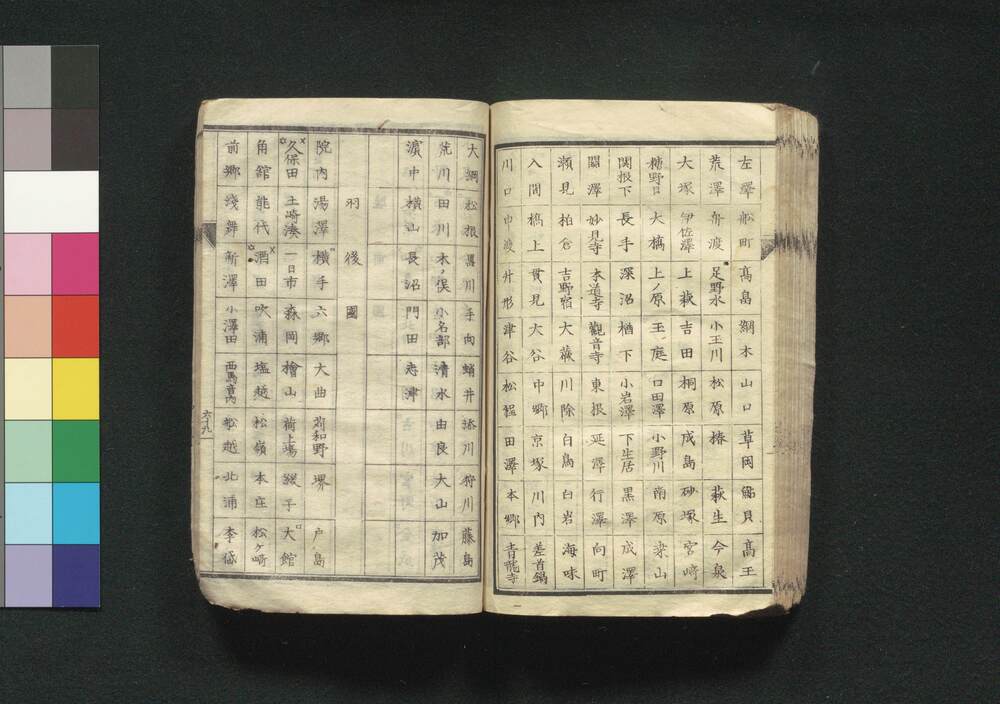 左澤 船町 髙畠 綱木 山口 草岡 鮎貝 髙玉
荒澤 舟渡 足野水 小玉川 松原 椿 萩生 今泉
大塚 伊佐澤 上萩 吉田 桐原 成島 砂塚 宮﨑
糠野目 大橋 上ノ原 玉庭 口田澤 小野川 南原 栗山
関根下 長手 深沼 楢下 小岩澤 下生居 黒澤 成澤
關澤 妙見寺 本道寺 觀音寺 東根 延澤 行澤 向町
瀬見 柏倉 吉野宿 大蔵 川除 白鳥 白岩 海味
入間 橋上 貫見 大谷 中郷 京塚 川内 差首鍋
川口 中渡 舛形 津谷 松程 田澤 本郷 青龍寺
大綱 松根 黒川 手向 蛸井 添川 狩川 藤島
荒川 田川 木ノ俣 小名部 清水 由良 大山 加茂
濵中 横山 長沼 門田 志津
羽後國
院内 湯澤 横手 六郷 大曲 苅和野 堺 戸島
久保田 土崎湊 一日市 森岡 檜山 荷上塲 綴子 大館
角舘 能代 酒田 吹浦 塩越 松嶺 本庄 松ヶ崎
前郷 綾舞 新澤 小澤田 西馬音内 船越 北浦 李岱
六十九